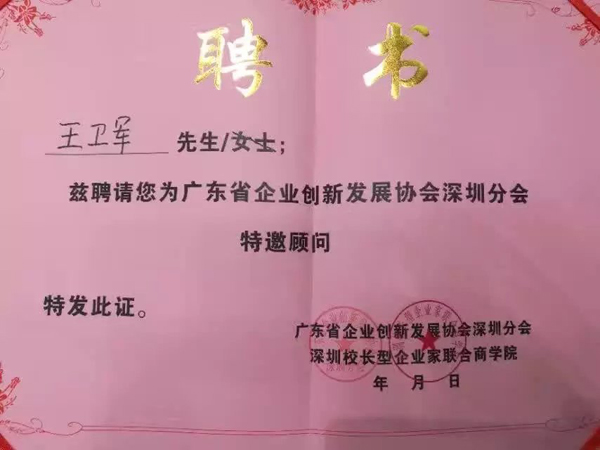 聘书
王卫军 先生/女士；
兹聘请您为广东省企业创新发展协会深圳分会
特邀顾问
特发此证。
广东省企业创新发展协会深圳分会
深圳校长型企业家联合商学院
年 月 日